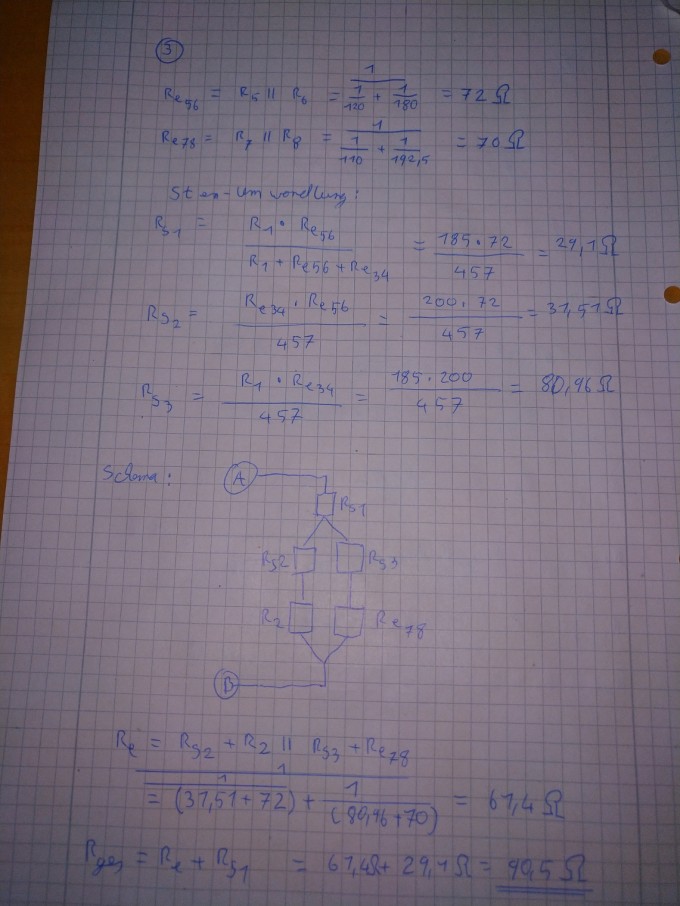 5
Re56 = R5 || R6 = 1 / (1/120 + 1/180) = 72 Ω
Re78 = R7 || R8 = 1 / (1/110 + 1/192,5) = 70 Ω
Stern-Umwandlung:
RS1 = R1 · Re56 / (R1 + Re56 + Re34) = 185 · 72 / 457 = 29,1 Ω
RS2 = Re34 · Re56 / 457 = 200 · 72 / 457 = 31,51 Ω
RS3 = R1 · Re34 / 457 = 185 · 200 / 457 = 80,96 Ω
Schema:
A
RS1
RS2 RS3
R2 Re78
B
Re = RS2 + R2 || RS3 + Re78
= 1 / (1 / (31,51 + 72) + 1 / (80,96 + 70)) = 61,4 Ω
Rges = Re + RS1 = 61,4Ω + 29,1 Ω = 90,5 Ω